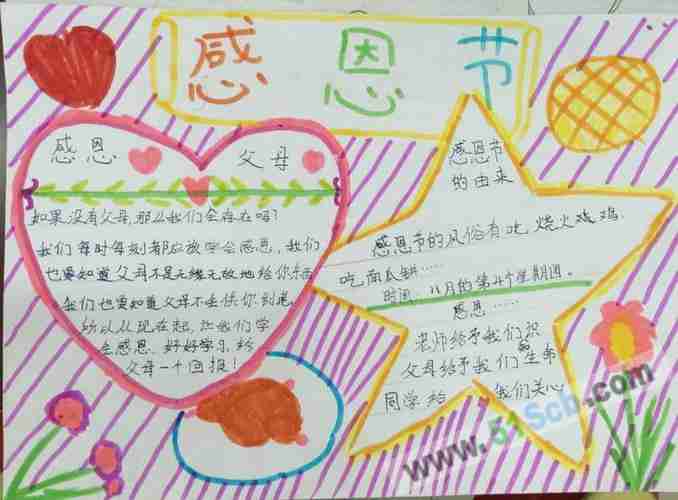 感恩节
感恩 父母
如果没有父母,那么我们会存在吗?
我们每时每刻都应该学会感恩,我们
也要知道父母不是无缘无故地给你东西
我们也要知道父母不
所以从现在起,让我们学
会感恩、好好学习、给
父母一个回报!
感恩节
的由来
感恩节的风俗有吃烧火鸡
吃南瓜饼……
时间:11月的第4个星期四。
感恩……
老师给予我们识
父母给予我们生命
同学给 我们关心
www.51Scb.com